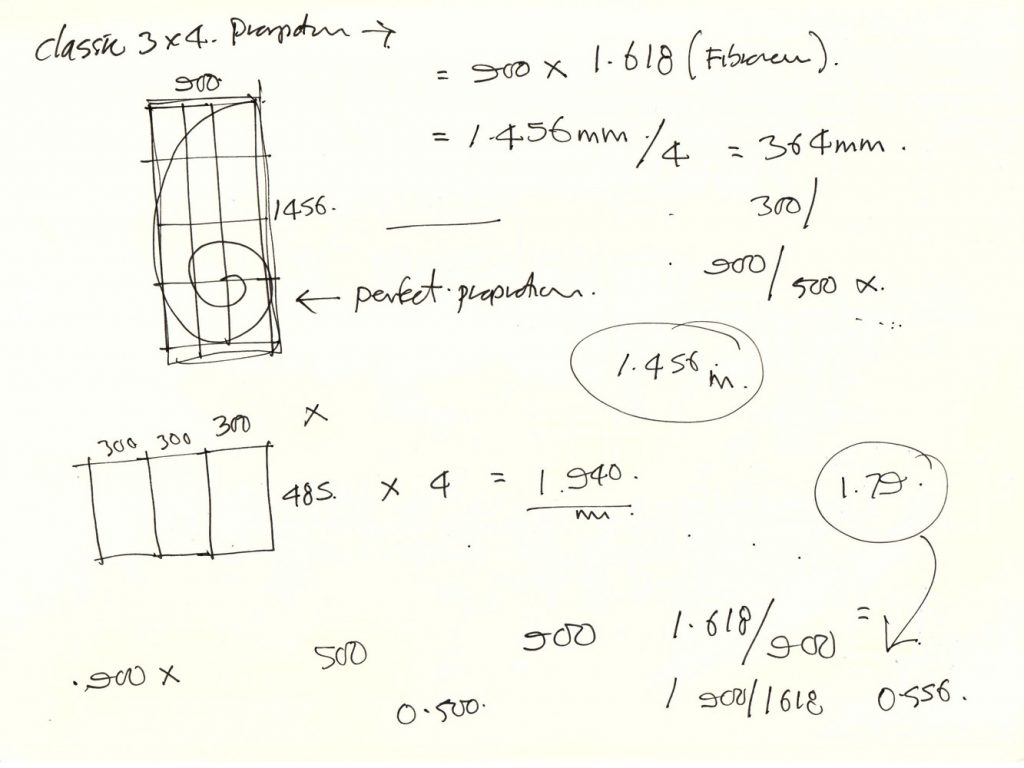 classic 3 x 4. Proportion →
900
= 900 x 1.618 (Fibonacci).
= 1.456mm /4 = 364mm.
1456.
300/
900/500 x.
← perfect proportion.
1.456 m.
300 300 300 x
485. x 4 = 1.940.
m
1.79.
.900 x 500 900 1.618/900 =
0.500.
1 900/1618 0.556.